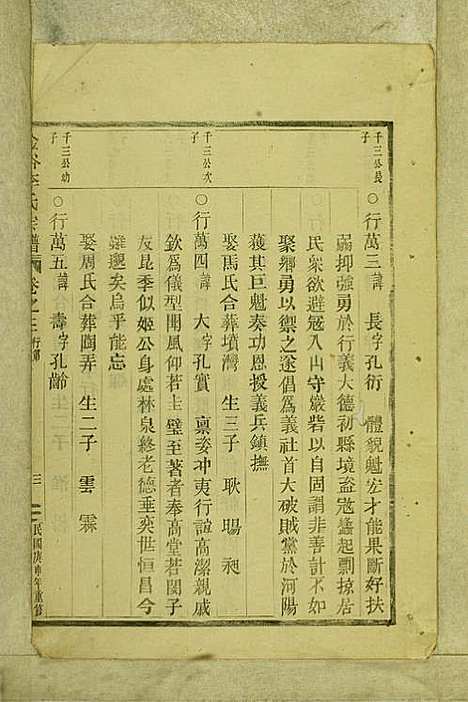 千三公長子
○行萬三諱長字孔衍 體貌魁宏才能果斷好扶
弱抑強勇於行義大德初縣境盜寇蠭起剽掠居
民衆欲避寇入山守巖砦以自固謂非善計不如
聚鄉勇以禦之遂倡爲義社首大破賊黨於河陽
獲其巨魁奏功恩授義兵鎮撫
娶馬氏合葬墳灣 生三子 耿 暘 昶
千三公次子
○行萬四諱大字孔實 稟姿冲夷行誼高潔親戚
欽爲儀型聞風仰若圭璧至著者奉高堂若閔子
友昆季似姬公身處林泉終老德垂奕世恒昌今
雖邈矣烏乎能忘
娶周氏合葬陶弄 生二子 雲 霖
千三公幼子
○行萬五諱壽字孔齡
李氏宗譜 卷之三 行第
三
民國庚申年重修